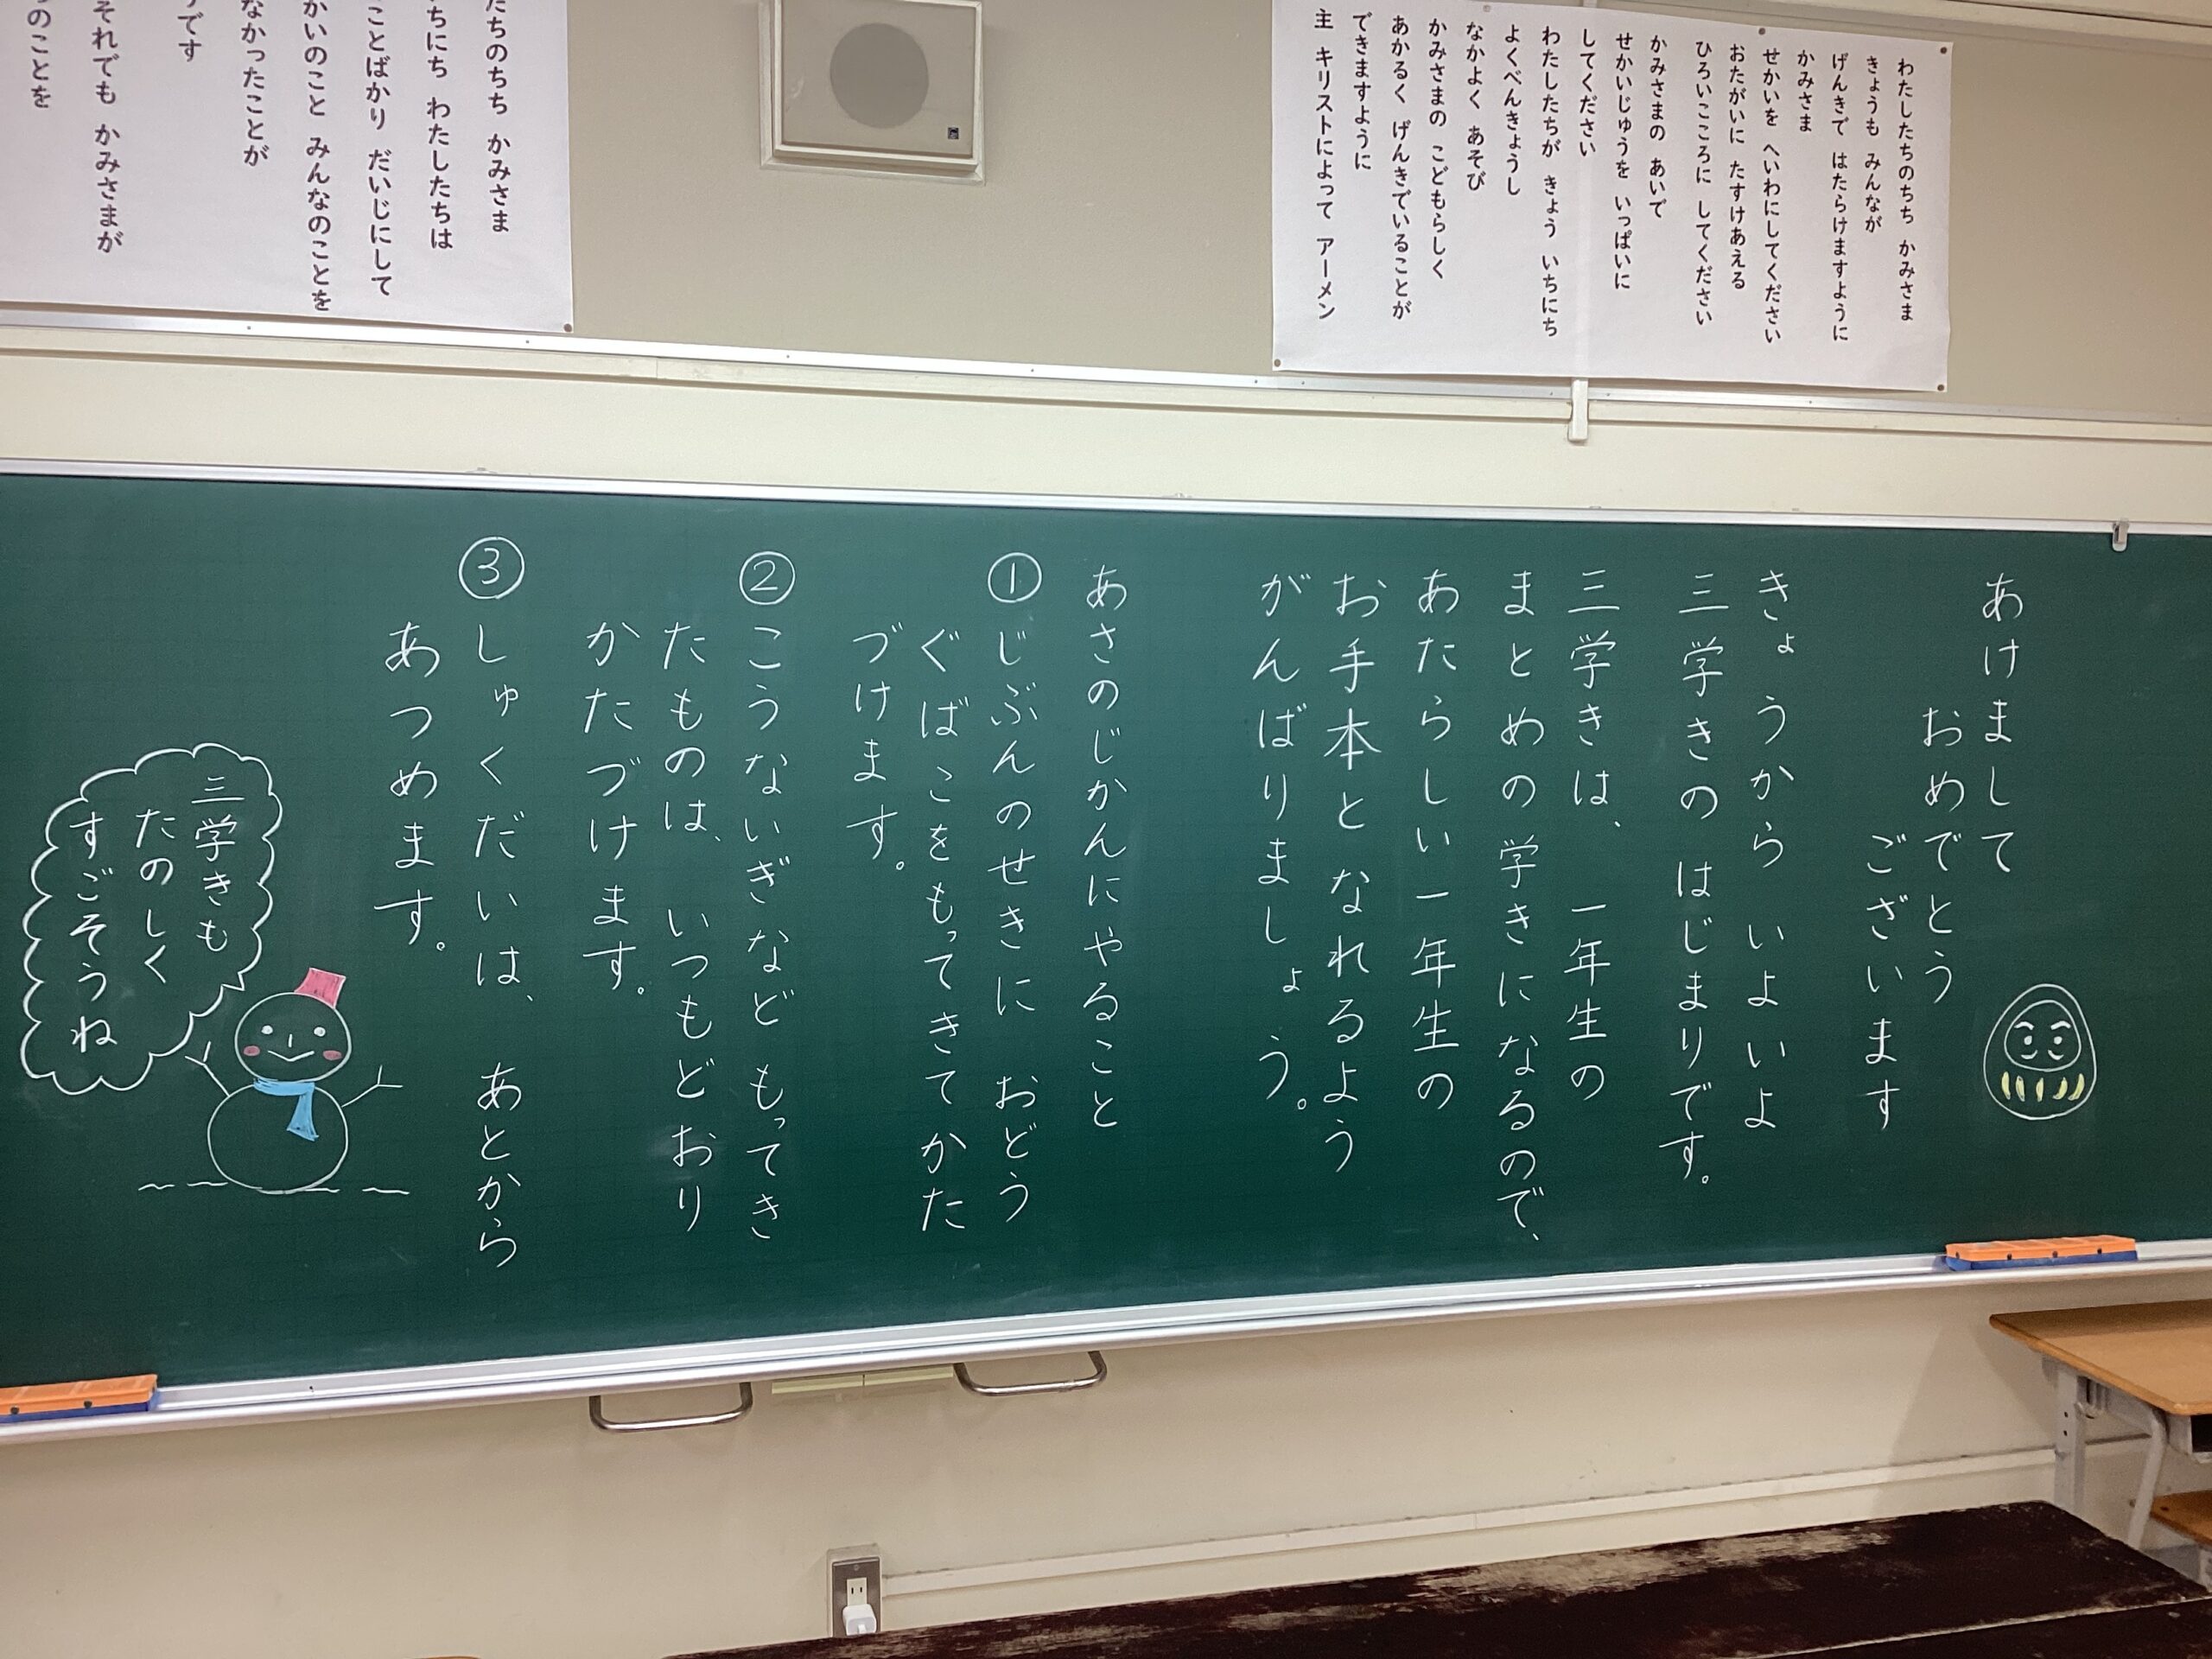 わたしたちのちち かみさま
きょうも みんなが
げんきで はたらけますように
かみさま
せかいを へいわにしてください
おたがいに たすけあえる
ひろいこころに してください
かみさまの あいで
せかいじゅうを いっぱいに
してください
わたしたちが きょう いちにち
よくべんきょうし
なかよく あそび
かみさまの こどもらしく
あかるく げんきでいることが
できますように
主 キリストによって アーメン
たちのちち かみさま
ちにち わたしたちは
ことばかり だいじにして
かいのこと みんなのことを
なかったことが
です
それでも かみさまが
のことを
あけまして
おめでとう
ございます
きょうから いよいよ
三学きの はじまりです。
三学きは、一年生の
まとめの学きになるので、
あたらしい一年生の
お手本と なれるよう
がんばりましょう。
あさのじかんにやること
①じぶんのせきに おどう
ぐばこをもってきてかた
づけます。
②こうないぎなど もってき
たものは、いつもどおり
かたづけます。
③しゅくだいは、あとから
あつめます。
三学きも
たのしく
すごそうね